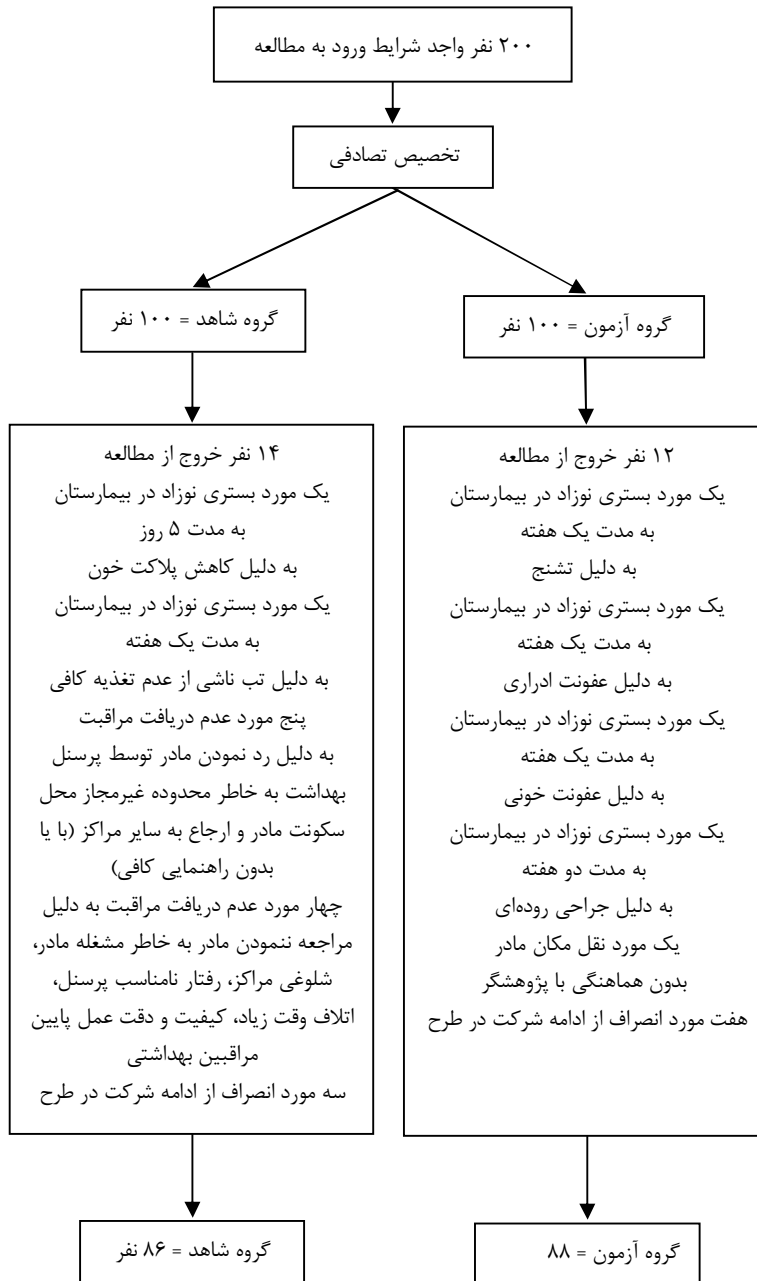 ۲۰۰ نفر واجد شرایط ورود به مطالعه
تخصیص تصادفی
گروه آزمون = ۱۰۰ نفر
گروه شاهد = ۱۰۰ نفر
۱۲ نفر خروج از مطالعه
یک مورد بستری نوزاد در بیمارستان
به مدت یک هفته
به دلیل تشنج
یک مورد بستری نوزاد در بیمارستان
به مدت یک هفته
به دلیل عفونت ادراری
یک مورد بستری نوزاد در بیمارستان
به مدت یک هفته
به دلیل عفونت خونی
یک مورد بستری نوزاد در بیمارستان
به مدت دو هفته
به دلیل جراحی روده‌ای
یک مورد نقل مکان مادر
بدون هماهنگی با پژوهشگر
هفت مورد انصراف از ادامه شرکت در طرح
۱۴ نفر خروج از مطالعه
یک مورد بستری نوزاد در بیمارستان
به مدت ۵ روز
به دلیل کاهش پلاکت خون
یک مورد بستری نوزاد در بیمارستان
به مدت یک هفته
به دلیل تب ناشی از عدم تغذیه کافی
پنج مورد عدم دریافت مراقبت
به دلیل رد نمودن مادر توسط پرسنل
بهداشت به خاطر محدوده غیرمجاز محل
سکونت مادر و ارجاع به سایر مراکز (با یا
بدون راهنمایی کافی)
چهار مورد عدم دریافت مراقبت به دلیل
مراجعه ننمودن مادر به خاطر مشغله مادر،
شلوغی مراکز، رفتار نامناسب پرسنل،
اتلاف وقت زیاد، کیفیت و دقت عمل پایین
مراقبین بهداشتی
سه مورد انصراف از ادامه شرکت در طرح
گروه آزمون = ۸۸
گروه شاهد = ۸۶ نفر